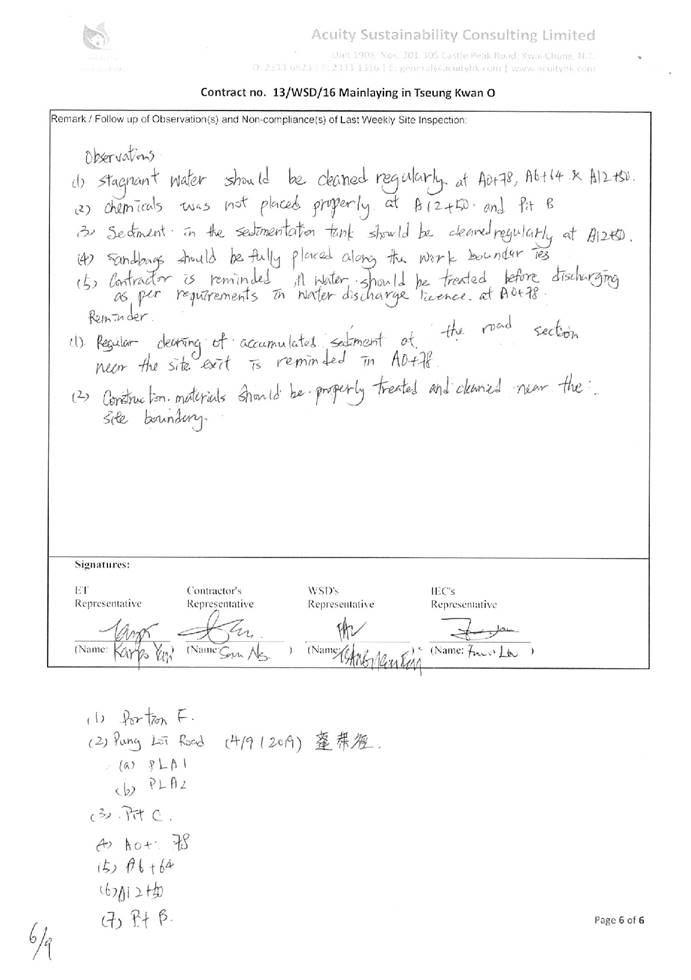 Acuity Sustainability Consulting Limited
Unit 1908, Nos. 301-305 Castle Peak Road, Kwai Chung, N.T.
Contract no. 13/WSD/16 Mainlaying in Tseung Kwan O
Remark / Follow up of Observation(s) and Non-compliance(s) of Last Weekly Site Inspection:
Observations
(1) Stagnant water should be cleaned regularly. at A0+78, A6+64 & A12+50.
(2) chemicals was not placed properly at A12+50. and Pit B
(3) Sediment in the sedimentation tank should be cleaned regularly at A12+50.
(4) Sandbags should be fully placed along the work boundaries
(5) Contractor is reminded all water should be treated before discharging
as per requirements in water discharge licence. at A0+78.
Reminder.
(1) Regular clearing of accumulated sediment at the road section
near the site exit is reminded in A0+78.
(2) Construction materials should be properly treated and cleaned near the
site boundary.
Signatures:
ET Contractor's WSD's IEC's
Representative Representative Representative Representative
(Name: ) (Name: ) (Name: ) (Name: )
(1) Portion F.
(2) Pung Loi Road (4/9/2019) 蓬萊徑.
(a) PLA1
(b) PLA2
(3) Pit C.
(4) A0+78
(5) A6+64
(6) A12+50
(7) Pit B.
6/9
Page 6 of 6